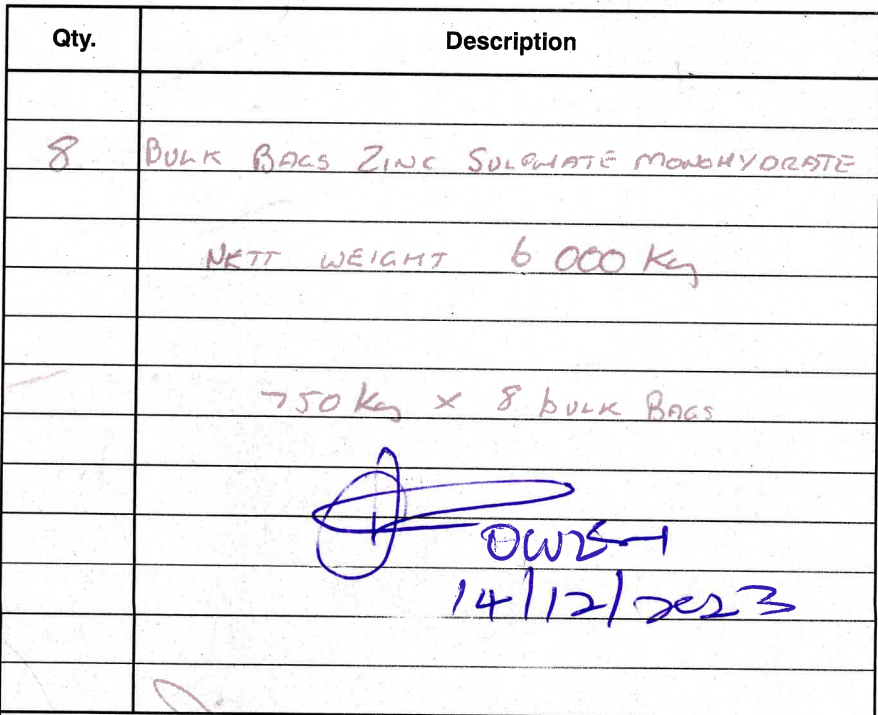 Qty. Description
8 BULK BAGS ZINC SULPHATE MONOHYDRATE
NETT WEIGHT 6 000 Kg
750 kg x 8 bULK BAGS
14/12/2023